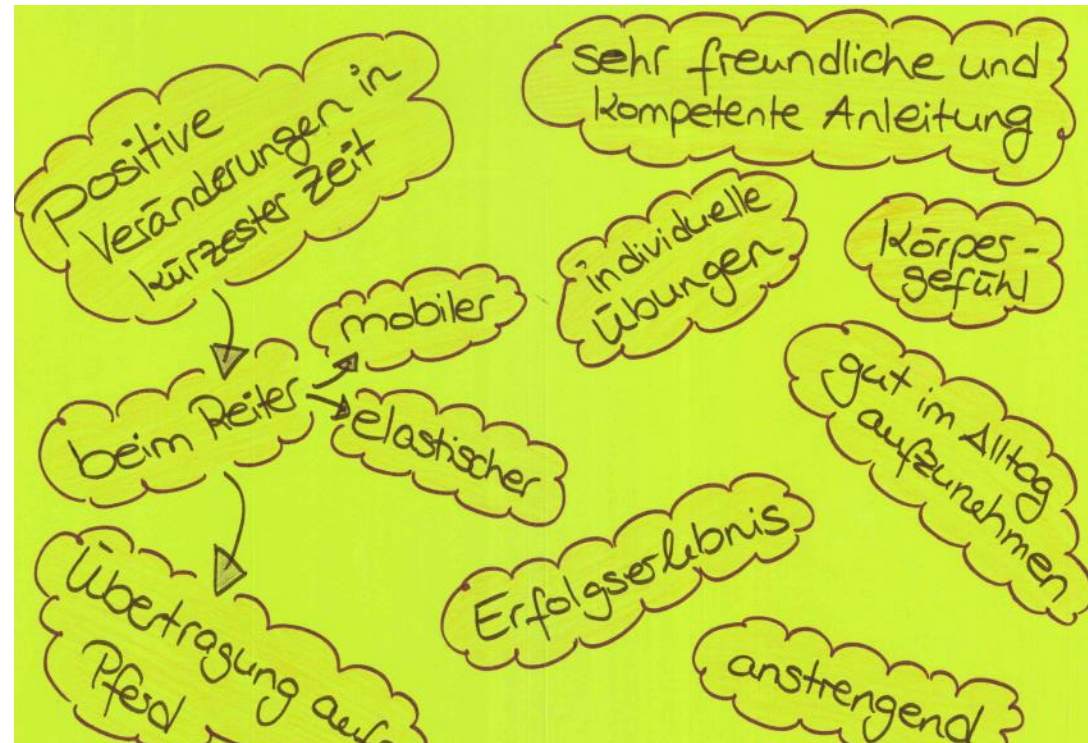 positive
Veränderungen in
kürzester Zeit
sehr freundliche und
kompetente Anleitung
individuelle
Übungen
Körper-
gefühl
mobiler
beim Reiter
elastischer
gut im Alltag
aufzunehmen
Erfolgserlebnis
Übertragung auf
Pferd
anstrengend